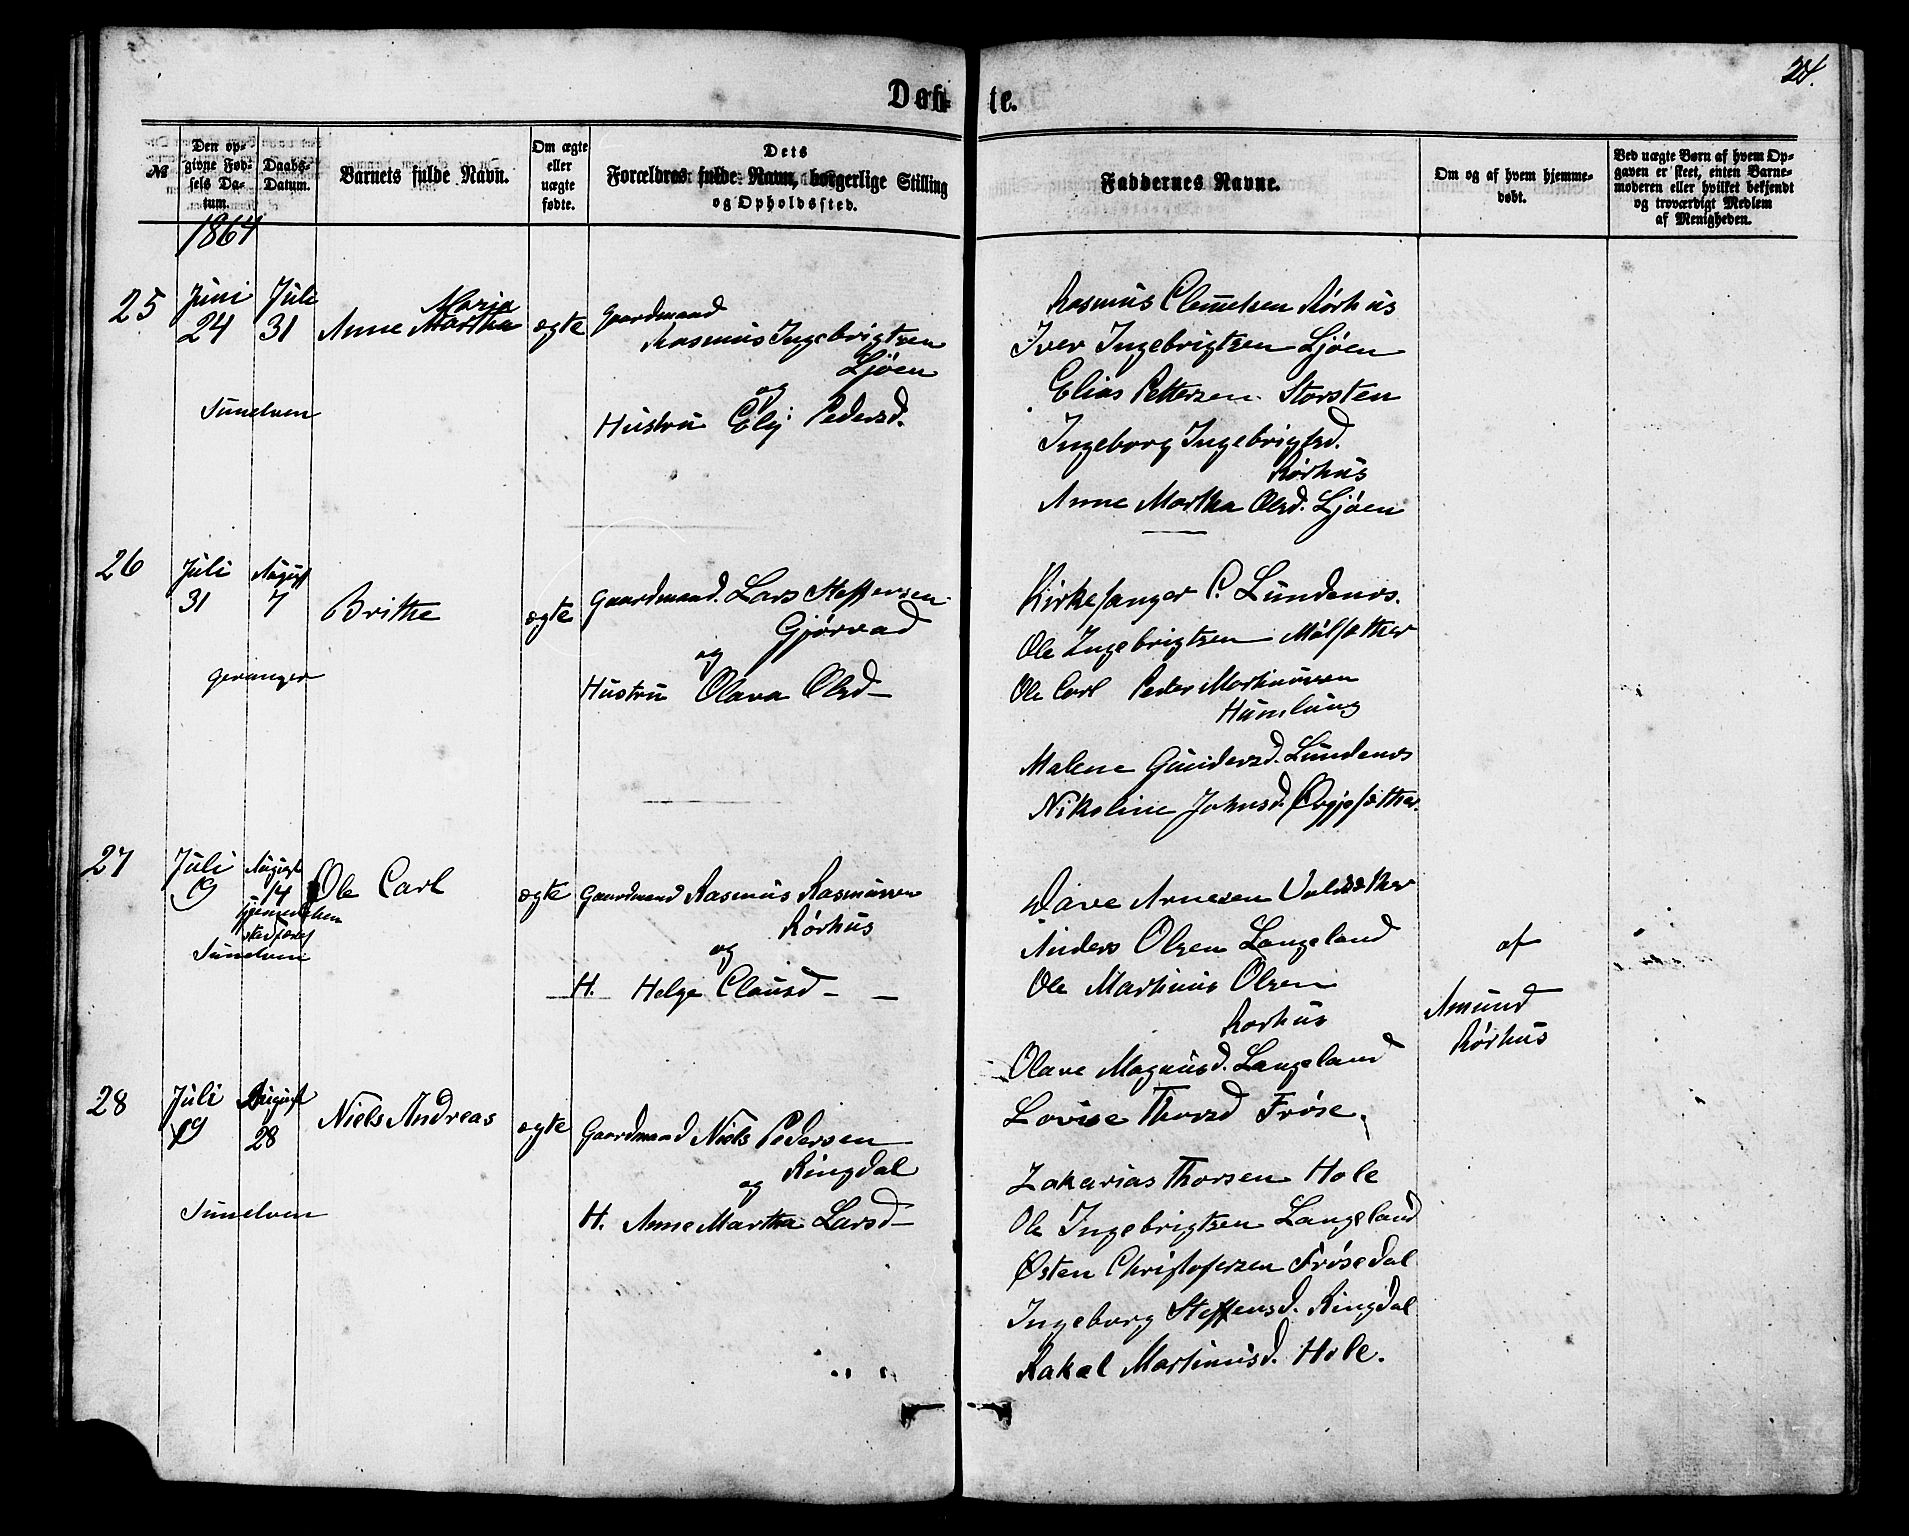 24.
Døb- te.
№
Den op-
givne Fød-
sels Da-
tum.
Daabs-
Datum.
Barnets fulde Navn.
Om ægte
eller
uægte
fødte.
Dets
Forældres fulde Navn, borgerlige Stilling
og Opholdssted.
Faddernes Navne.
Om og af hvem hjemme-
døbt.
Ved uægte Børn af hvem Op-
gaven er skeet, enten Barne-
moderen eller hvilket bekjendt
og troværdigt Medlem
af Menigheden.
1864
25 Juni 24 Juli 31
Maria
Anne Martha
ægte
Gaardmand
Rasmus Ingebrigtsen
Ljøen
og
Hustru Elij Pedersd.
Sunelven
Rasmus Clemetsen Rørhus
Iver Ingebrigtsen Ljøen
Elias Pettersen Storsten
Ingeborg Ingebrigtsd.
Rørhus
Anne Martha Olsd. Ljøen
26 Juli 31 August 7
Brithe
ægte
Gaardmand. Lars Steffensen
Gjørvad
og
Hustru Olava Olsd
Geranger
Kirkesanger P. Lundenes.
Ole Ingebrigtsen Mølsæther
Ole Carl Peder Martinussen
Humlung
Malene Gundersd. Lundenes
Nikoline Johnsd.
27 Juli 19 August 14
Hjemmedøben
stadfæstet
Sunelven
Ole Carl
ægte
Gaardmand Rasmus Rasmussen
Rørhus
og
H. Helge Clausd
Arnesen
Anders Olsen Langeland
Ole Martinus Olsen
Rørhus
Olave Magnusd. Langeland
Lovise Thorsd Frøse.
af
Amund
Rørhus
28 Juli 19 August 28
Niels Andreas
ægte
Gaardmand Niels Pedersen
Ringdal
og
H. Anne Martha Larsd
Sunelven
Zakarias Thorsen Hole
Ole Ingebrigtsen Langeland
Østen Christofersen Frøsedal
Ingeborg Steffensd. Ringdal
Rakel Martinusd. Hole.